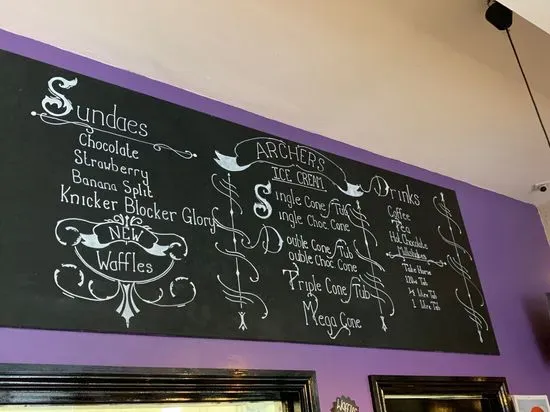 Sundaes
Chocolate
Strawberry
Banana Split
Knicker Blocker Glory
NEW
Waffles
ARCHERS
ICE CREAM
Single Cone/Tub
Single Choc Cone
Double Cone/Tub
Double Choc Cone
Triple Cone/Tub
Mega Cone
Drinks
Coffee
Tea
Hot Chocolate
Milkshakes
Take Home
Litre Tub
Litre Tub
1 Litre Tub